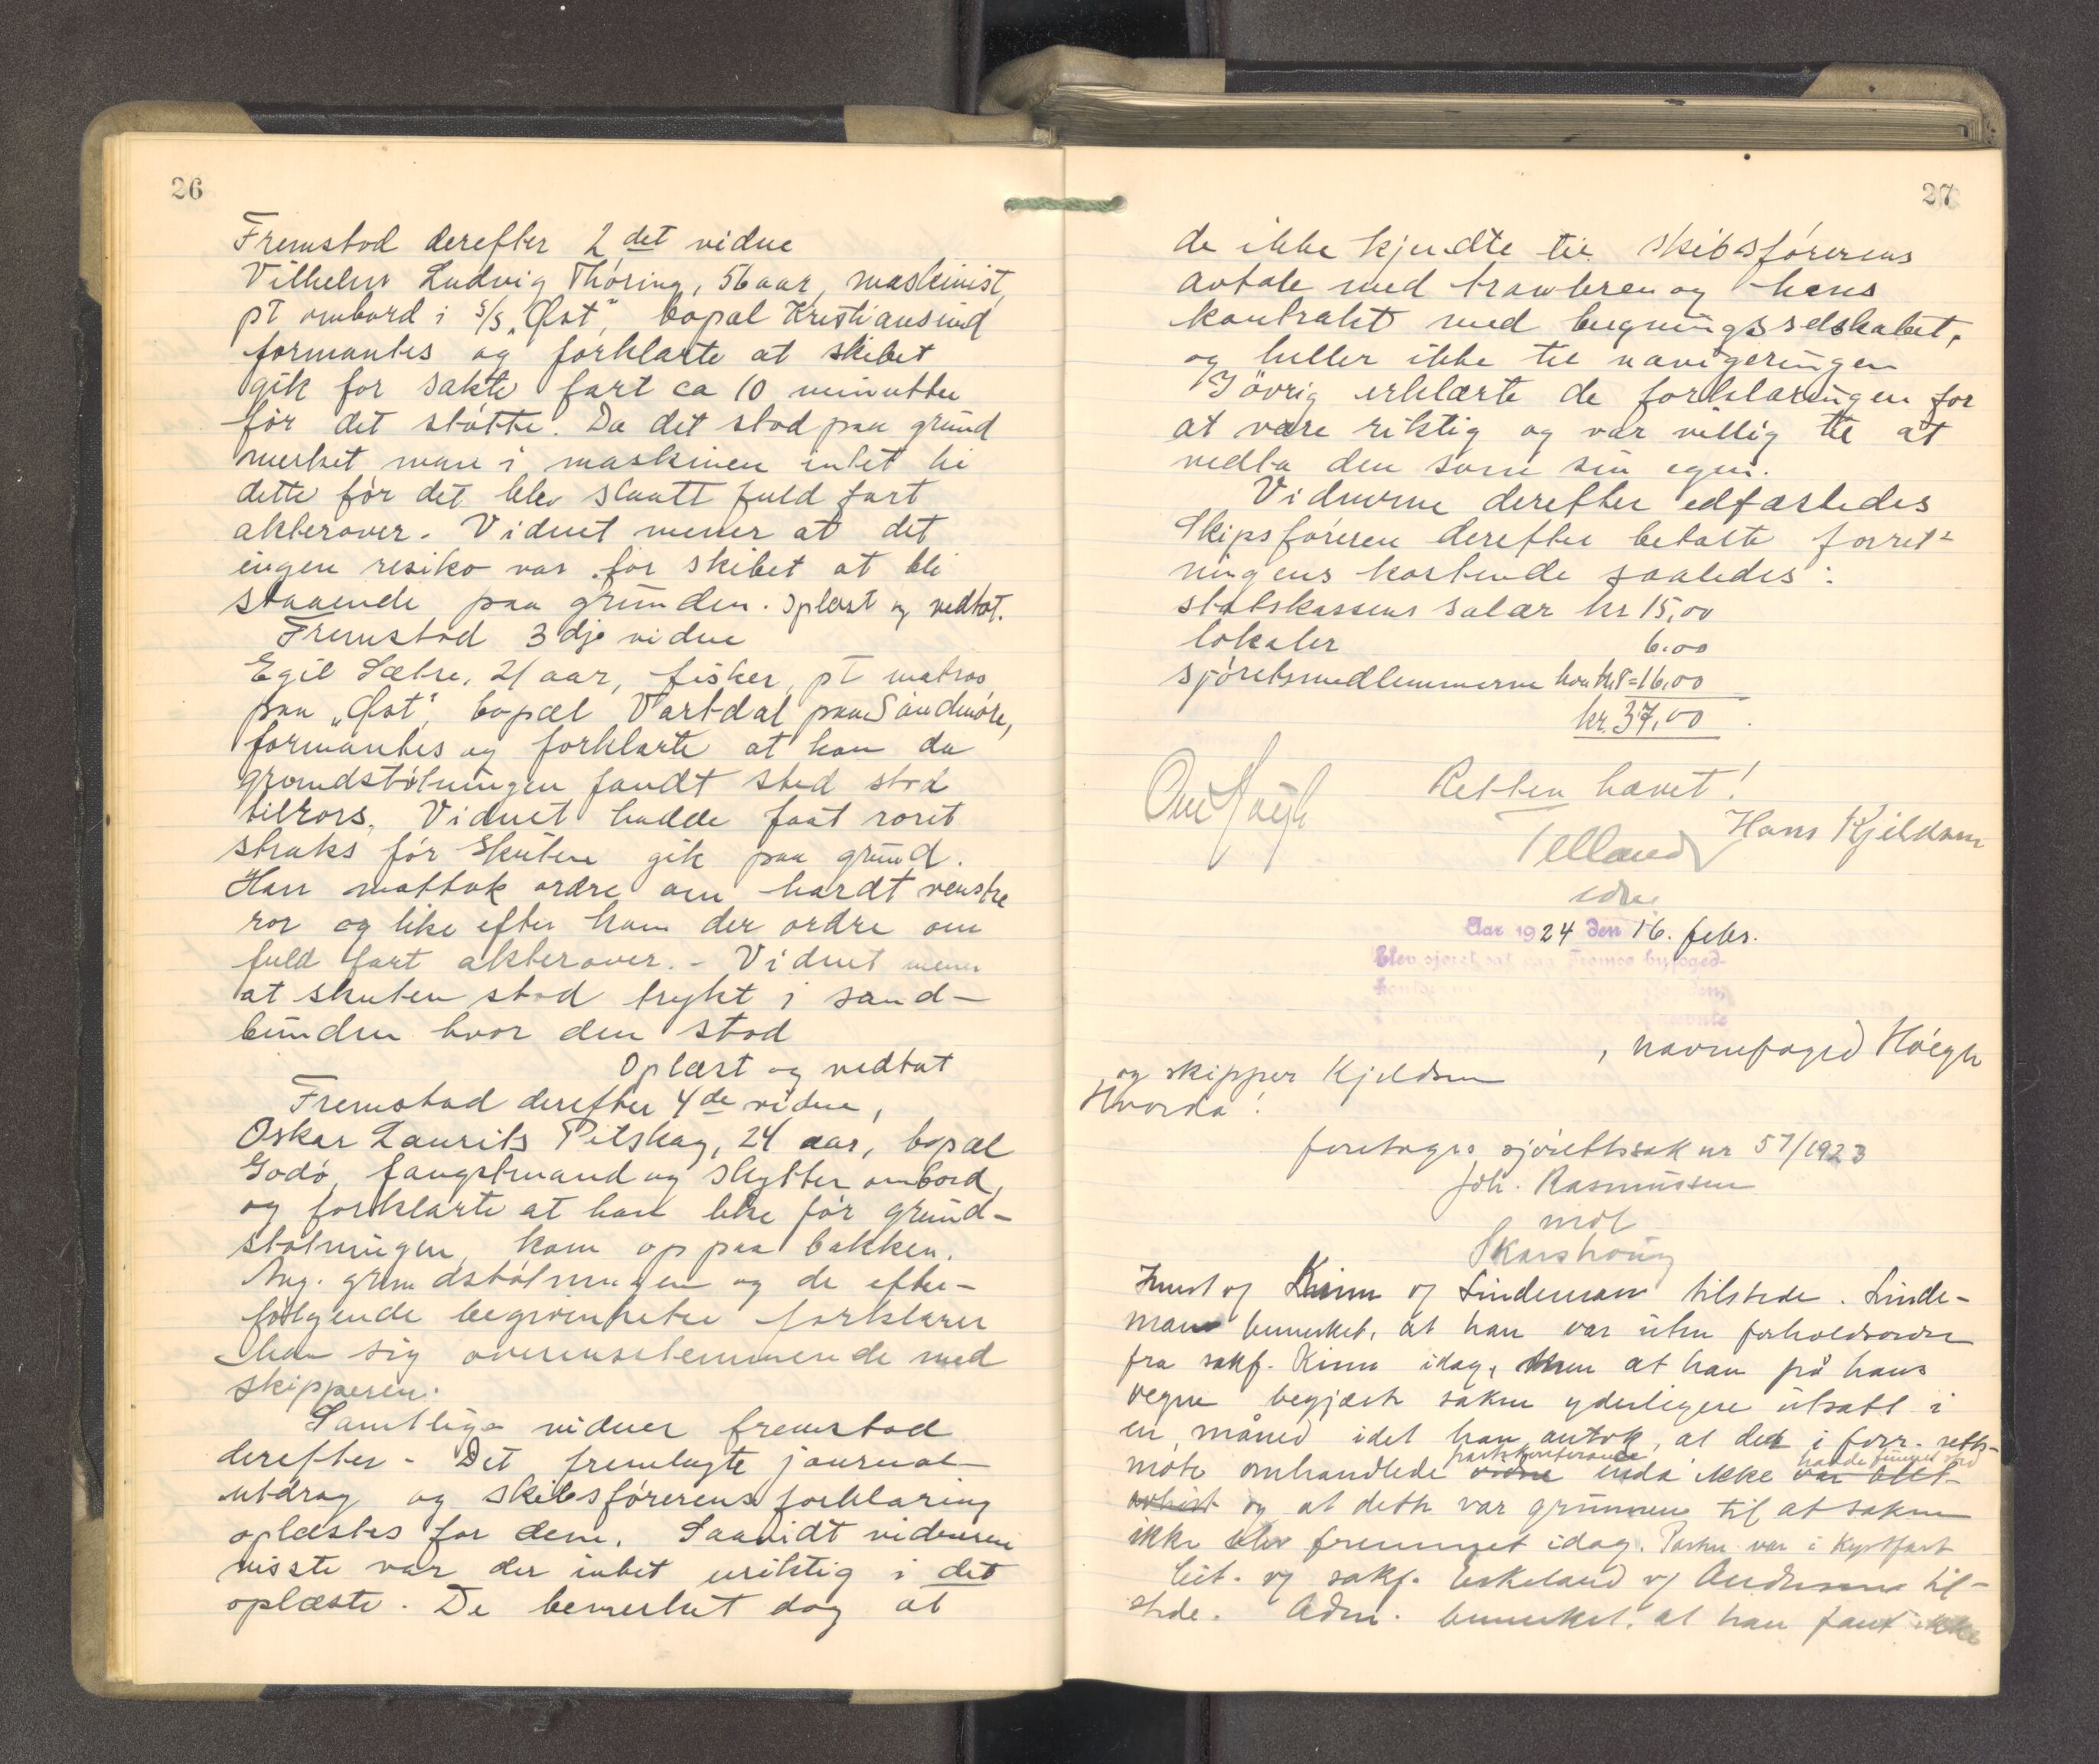 26
Fremstod derefter 2det vidne
Vilhelm Ludvig Thøring, 56 aar, maskinist,
pt ombord i s/s "Øst", bopæl Kristiansund
formantes og forklarte at skibet
gik for sakte fart ca 10 minutter
før det støtte. Da det stod paa grund
merket man i maskinen intet til
dette før det blev slaatt fuld fart
akterover. Vidnet mener at det
ingen resiko var for skibet at bli
staaende paa grunden. Oplæst og vedtat.
Fremstod 3dje vidne
Egil Sætre, 21 aar, fisker, pt matros
paa "Øst", bopæl Vartdal paa Søndmøre,
formantes og forklarte at han da
grundstøtningen fandt sted stod
tilrors. Vidnet hadde faat roret
straks før skuten gik paa grund.
Han mottok ordre om hardt venstre
ror og like efter kom der ordre om
fuld fart akterover. - Vidnet mener
at skuten stod trykt i sand-
bunden hvor den stod
Oplæst og vedtat
Fremstod derefter 4de vidne,
Oskar Laurits Pilskog, 24 aar, bopæl
Godø, fangstmand og skytter ombord,
og forklarte at han like før grund-
støtningen, kom op paa bakken.
Ang. grundstøtningen og de efter-
følgende begivenheter forklarer
han sig overensstemmende med
skipperen.
Samtlige vidner fremstod
derefter - Det fremlagte journal-
utdrag og skibsførerens forklaring
oplæstes for dem. Saavidt vidnerne
visste var der intet uriktig i det
oplæste. De bemerket dog at
27
de ikke kjendte til skibsførerens
avtale med trawleren og hans
kontrakt med bergningsselskabet,
og heller ikke til navigeringen
Iøvrig erklærte de forklaringen for
at være riktig og var villig til at
vedta den som sin egen.
Vidnerne derefter edfæstedes
Skipsføreren derefter betalte forret-
ningens kostende saaledes:
statskassens salær kr 15,00
lokaler 6.00
sjøretsmedlemmerne hver kr 8 = 16,00
kr. 37,00
Retten hævet!
Ove Høigh
Telland Hans Kjeldsen
Aar 1924 den 16. febr.
Blev sjøret sat paa Tromsø byfoged-
, havnefoged Høegh
og skipper Kjeldsen
Hvorda!
foretoges sjørettssak nr 57/1923
Joh. Rasmussen
mot
Skarshoug
Knut og Kinn og Lindeman tilstede. Linde-
man bemerket, at han var uten forholdsordre
fra sakf. Kinn idag, men at han på hans
vegne begjærte saken yderligere utsatt i
en måned idet han antok, at det i forr. retts-
partskonferance hadde funnet sted
møte omhandlede vidne enda ikke var blit
avhørt og at dette var grunnen til at saken
ikke blev fremmet idag. Parten var i Kystfart
Cit. og sakf. Eskeland og Andersen til-
stede. Adm. bemerket, at han fant ikke